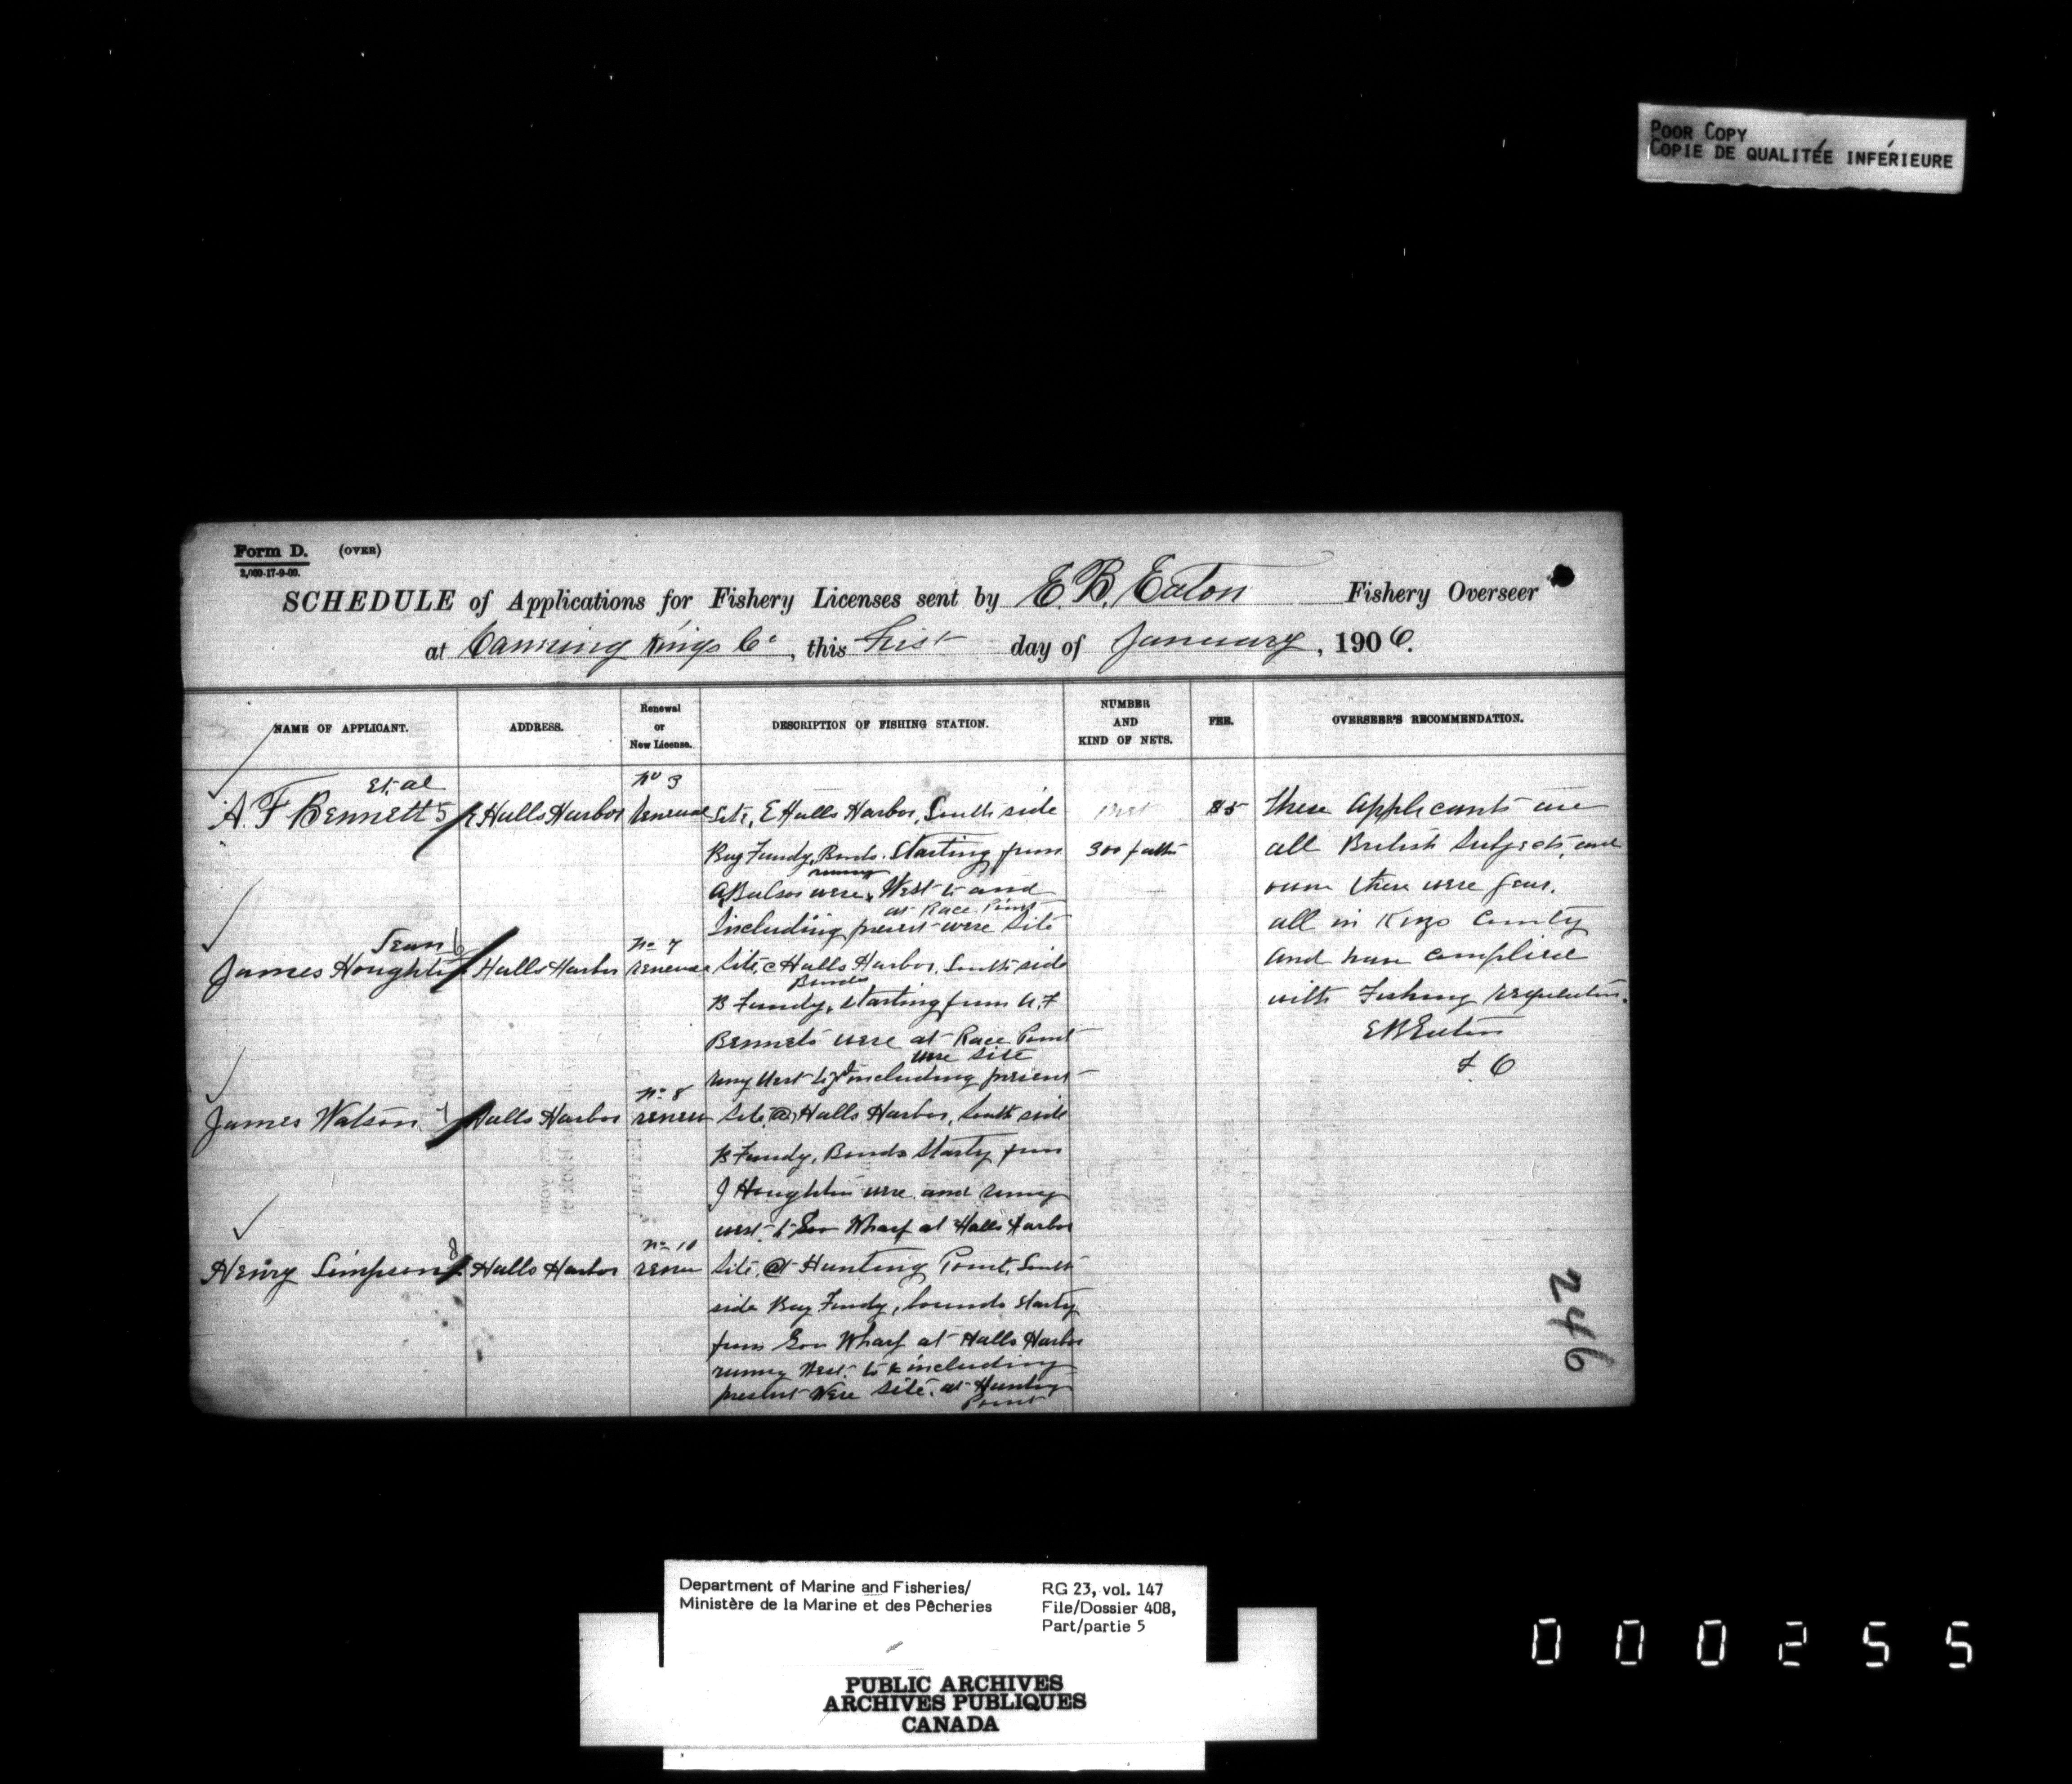 POOR COPY
COPIE DE QUALITÉE INFÉRIEURE
Form D. (OVER)
2,000-17-9-00.
SCHEDULE of Applications for Fishery Licenses sent by E. B. Eaton Fishery Overseer
at Canning Kings Co, this first day of January, 1906.
NAME OF APPLICANT.
ADDRESS.
Renewal
or
New License.
DESCRIPTION OF FISHING STATION.
NUMBER
AND
KIND OF NETS.
FEE.
OVERSEER'S RECOMMENDATION.
Et. al
A. F Bennett 5
E Halls Harbor
No 3
Renewal
Site, E Halls Harbor, South side
Bay Fundy, Bnds. Starting from
runing
were, West to and
at Race Point
Including present were Site
300 fath
$5
These applicants are
all British Subjects, and
own there were gear.
all in Kings County
and have complied
with Fishing regulations.
E B Eaton
F. O
Senr 6
James Houghton
Halls Harbor
No 7
renewal
Site @ Halls Harbor, South side
Bounds
B Fundy, starting from A. F
Bennets were at Race Point
were site
runy West to & including present
James Watson 7
Halls Harbor
No 8
renew
Site, @ Halls Harbor, South side
B Fundy, Bounds Starty from
J Houghton were and runing
west to Gov Wharf at Halls Harbor
Henry Simpson 8
Halls Harbor
No 10
renew
Site, @ Hunting Point, South
side Bay Fundy, bounds starty
from Gov Wharf at Halls Harbor
runing West. to & including
present Were Site. at Hunting
Point
246
Department of Marine and Fisheries/
Ministère de la Marine et des Pêcheries
RG 23, vol. 147
File/Dossier 408,
Part/partie 5
PUBLIC ARCHIVES
ARCHIVES PUBLIQUES
CANADA
000255